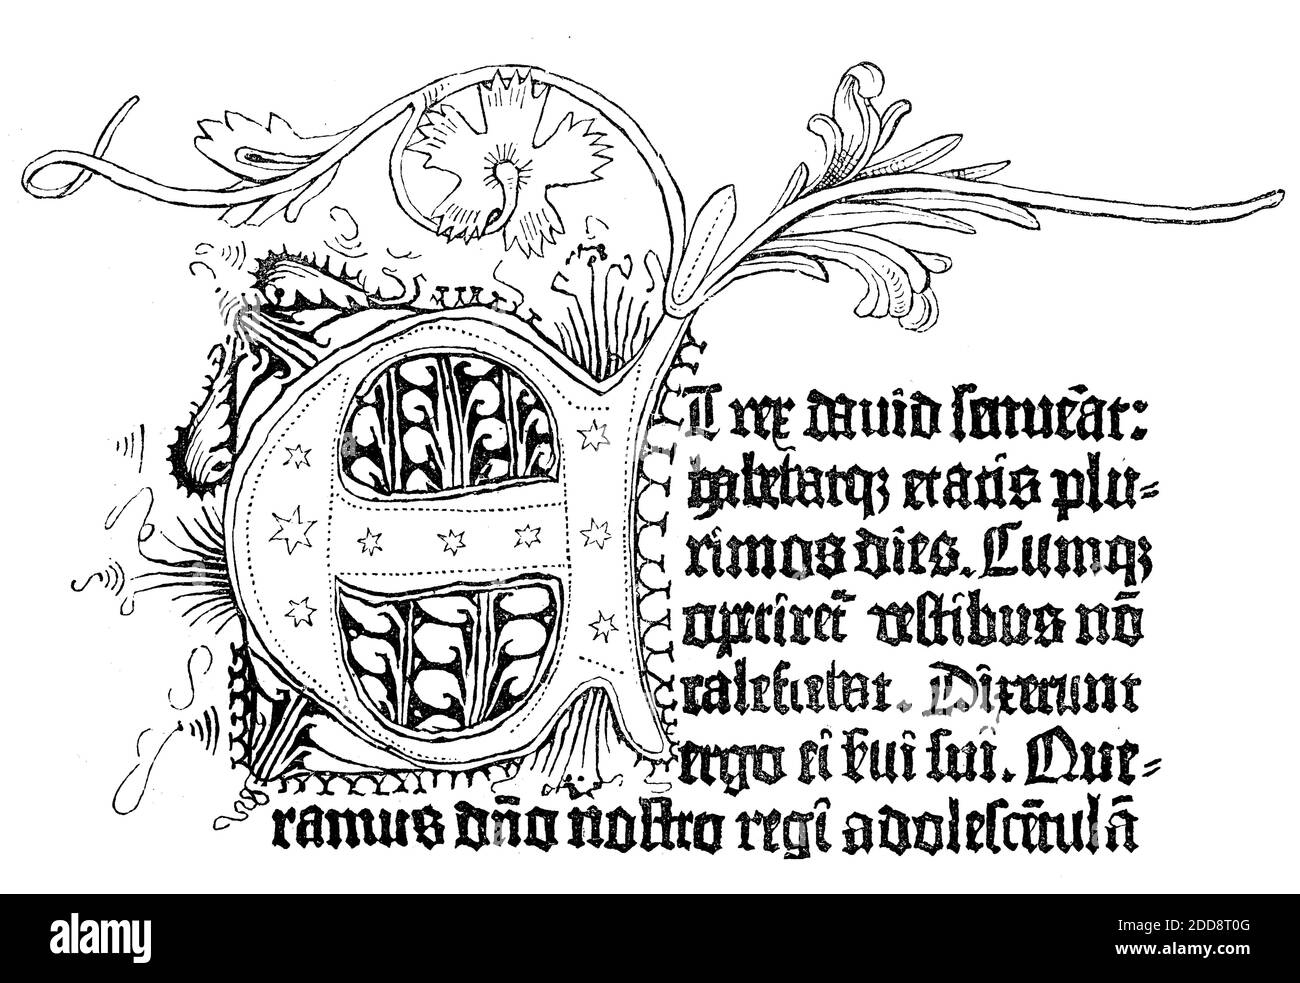 ET rex david senuerat:
habebatq; etatis plu-
rimos dies. Cumq;
operiret᷑ vestibus nō
calefiebat. Dixerunt
ergo ei ſui ſui. Que-
ramus dño noſtro regi adoleſcētulā
alamy
Image ID: 2DD8T0G
www.alamy.com